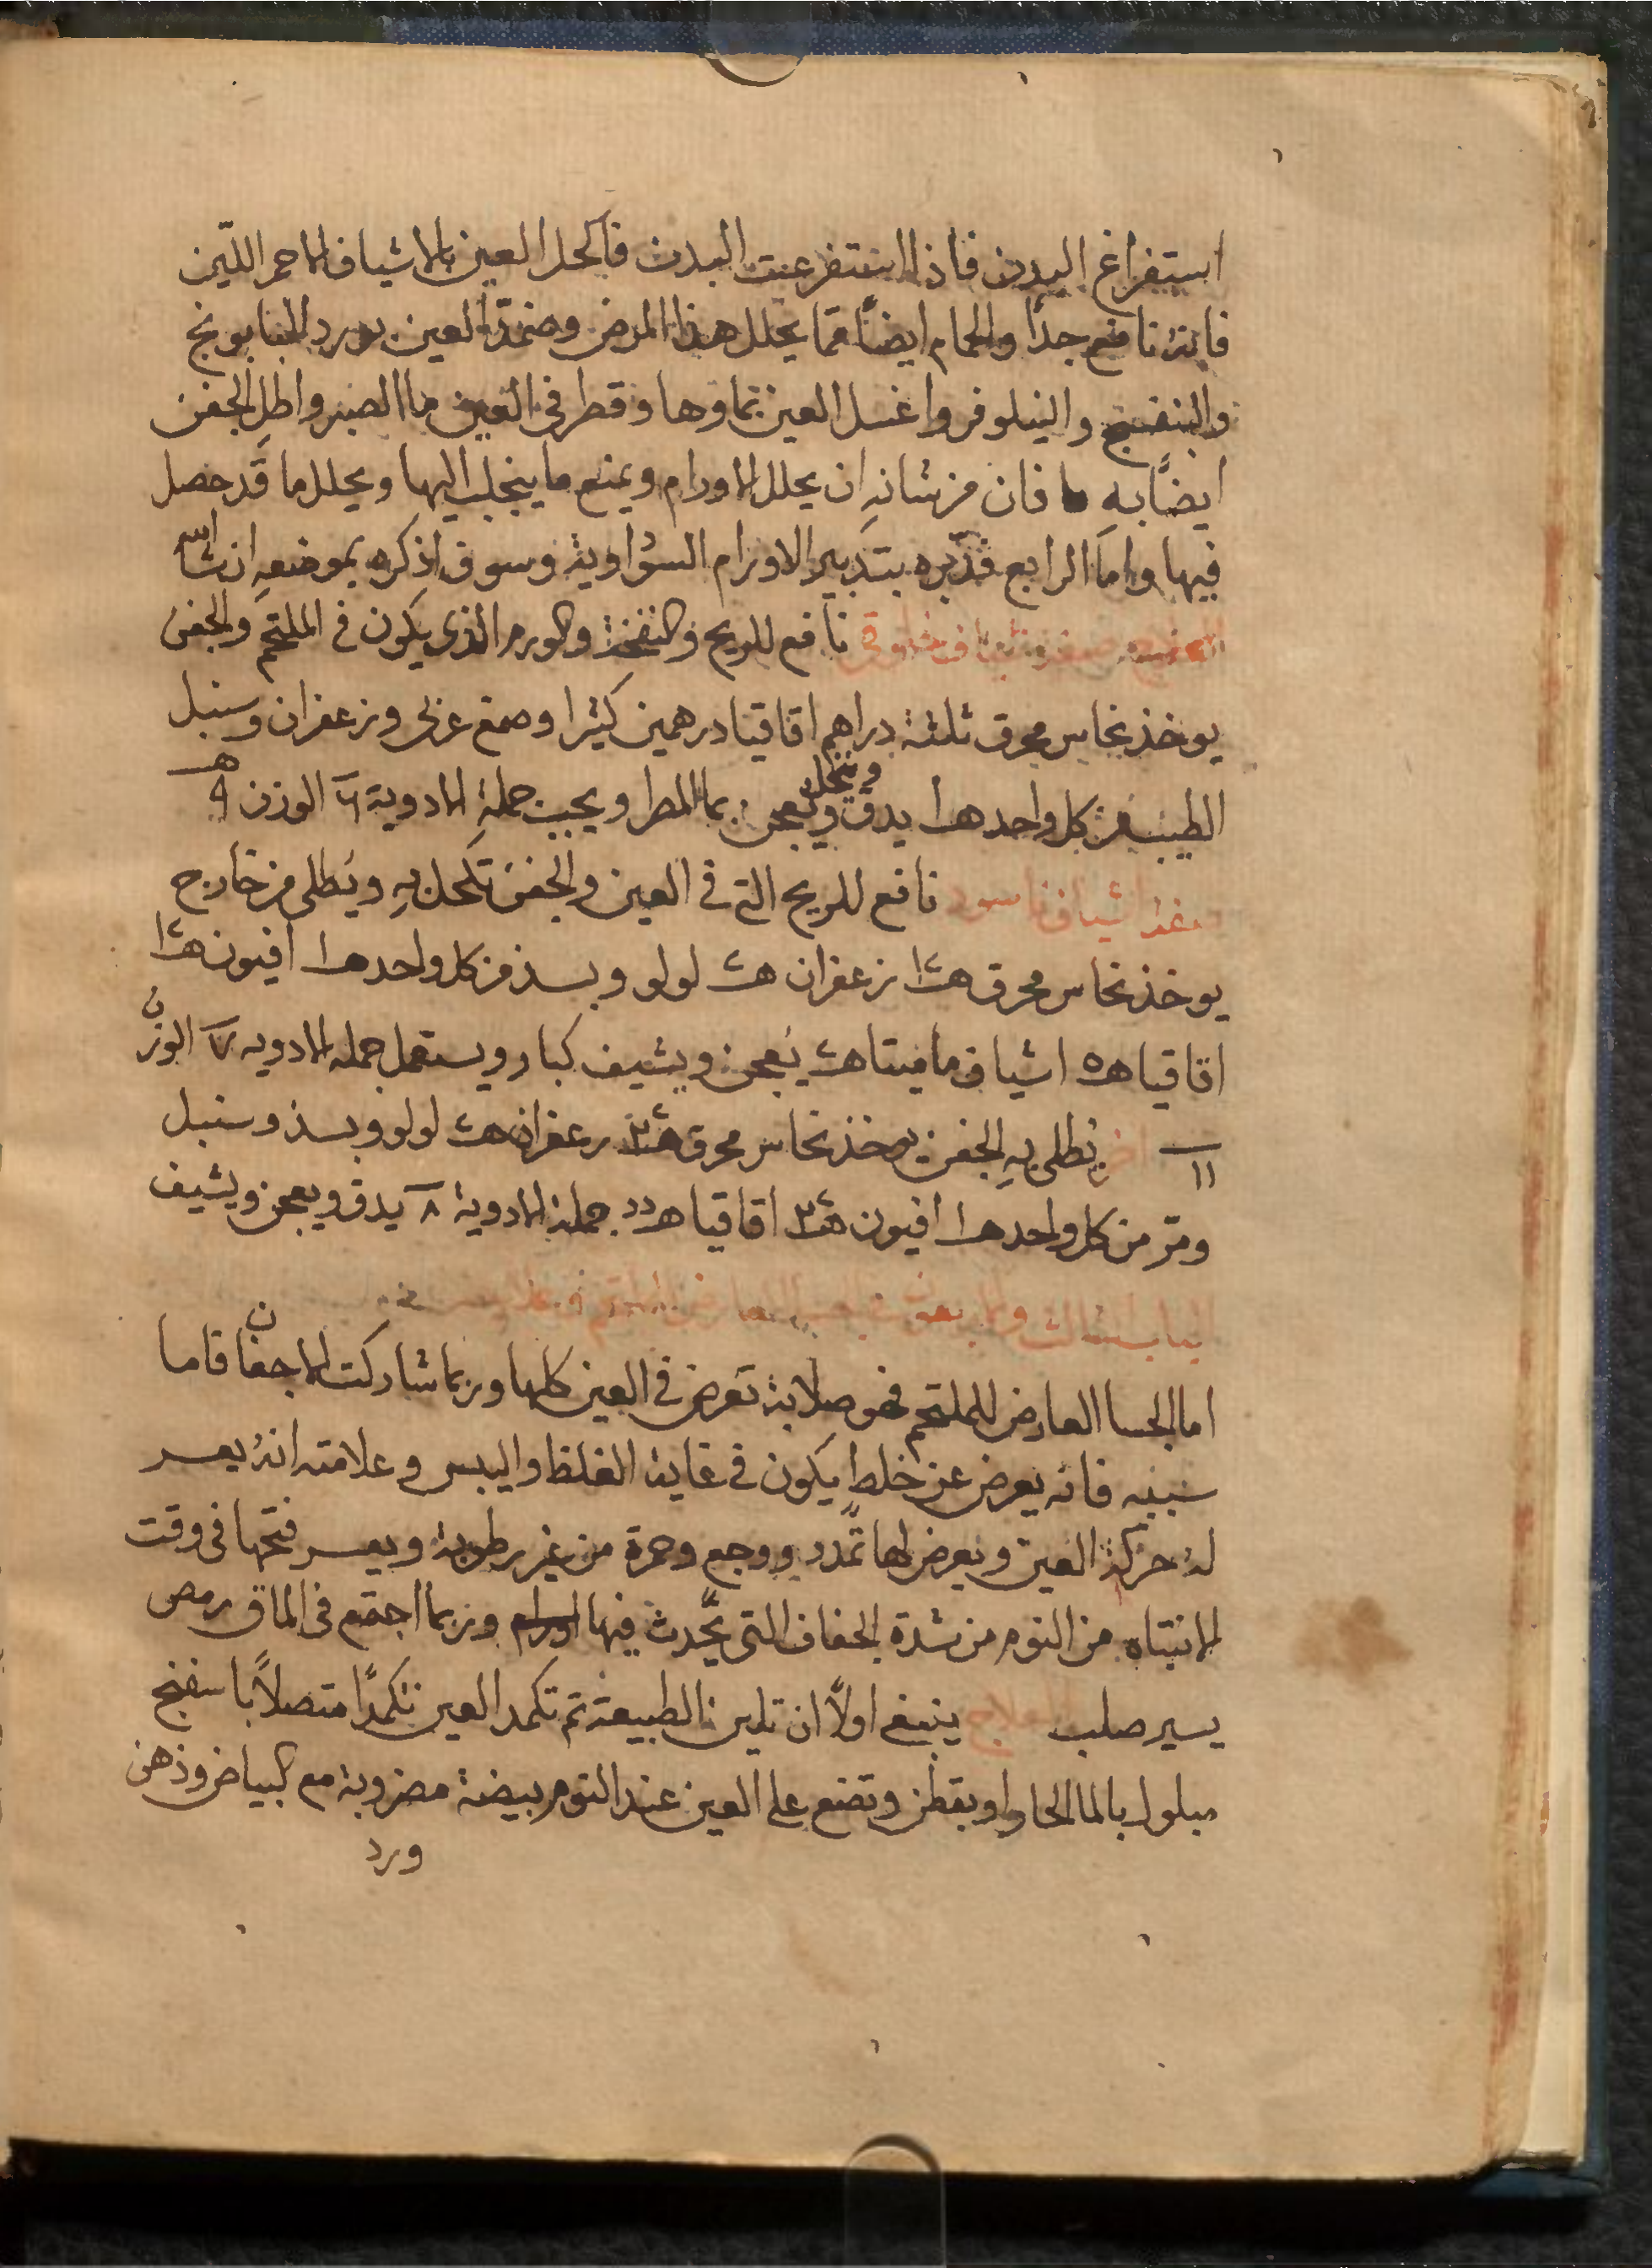 استفراغ البدن فاذا استفرغت البدن فاكحل العين بالاشياف الاحمر اللّين
فانهُ نافع جداً والحمام ايضاً مما يحلل هذا المرض وضمّد العين بورد البابونج
والبنفسج والنيلوفر واغسل العين بماوها وقطر في العين ما الصبر واطلِ الجفن
ايضًا بهِ فان من شانهِ ان يحلل الاورام ويمنع ما ينجلب اليها ويحلل ما قد حصل
فيها واما الرابع فدبّره بتدبير الاورام السوداوية وسوف اذكره بموضعهِ ان شا الله
نافع للريح والنفخة والورم الذى يكون في الملتحم والجفن
يوخذ نحاس محرق ثلثة دراهم اقاقيا درهمين كثيرا وصمغ عربي وزعفران وسنبل
الطيب من كل واحد هـ ا يدق وينخل ويعجن بما المطر ويحبب جملة الادوية ٦ الوزن هـ ٩
اشياف اسود نافع للريح التي في العين والجفن تكحل بهِ ويُطلى من خارج
يوخذ نحاس محرق زعفران لولو وبسذ من كل واحد هـ ا افيون
اقاقيا هـ ٥ اشياف ماميتا يُعجن ويشيف كبار ويستعمل جمله الادويه ٧ الوزن
١١ اخر يُطلى بهِ الجفن يوخذ نحاس محرق زعفران لولو وبسذ وسنبل
ومرّ من كل واحد هـ ا افيون اقاقيا جملة الادوية ٨ يدق ويعجن ويشيف
الباب الثالث والاربعون في
اما الجسا العارض للملتحم فهو صلابة تعرض في العين كلها وربما شاركت الاجفان فاما
سببه فانه يعرض عن خلط يكون في غاية الغلظ واليبس وعلامته انهُ يعسر
لهُ حركة العين ويعرض لها تمدد ووجع وحمرة من غير رطوبة ويعسر فتحها في وقت
الانتباه من النوم من شدة الجفاف التي يحدث فيها وربما اجتمع في الماق رمص
يسير صلب العلاج ينبغي اولاً ان تلين الطبيعة ثم تكمد العين تكمدًا متصلاً باسفنج
مبلول بالما الحار او بقطن وتضع على العين عند النوم بيضة مضروبة مع البياض ودهن
ورد